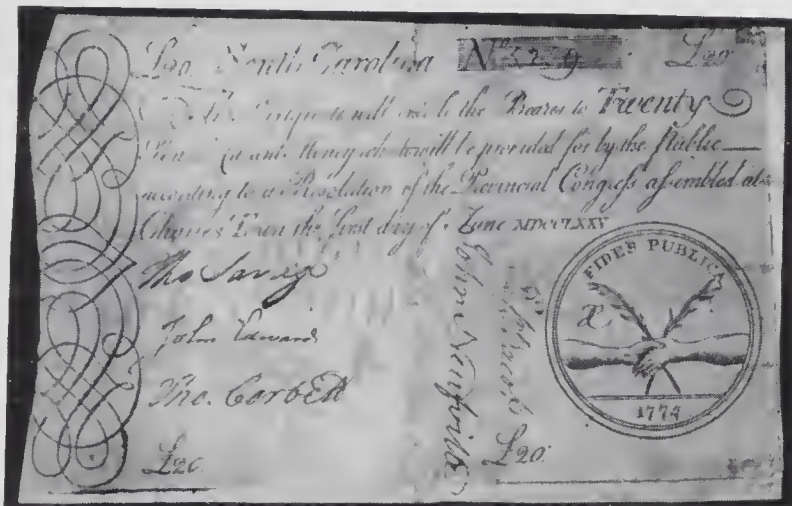 £20. South Carolina No 329 £20
the Bearer to Twenty
Money which will be provided for by the Public
according to a Resolution of the Provincial Congress assembled at
Charles Town the first day of June MDCCLXXV
Tho Savage
John Edwards
Tho. Corbett
John Neufville
£20.
£20.
FIDES PUBLICA
Æ
1774